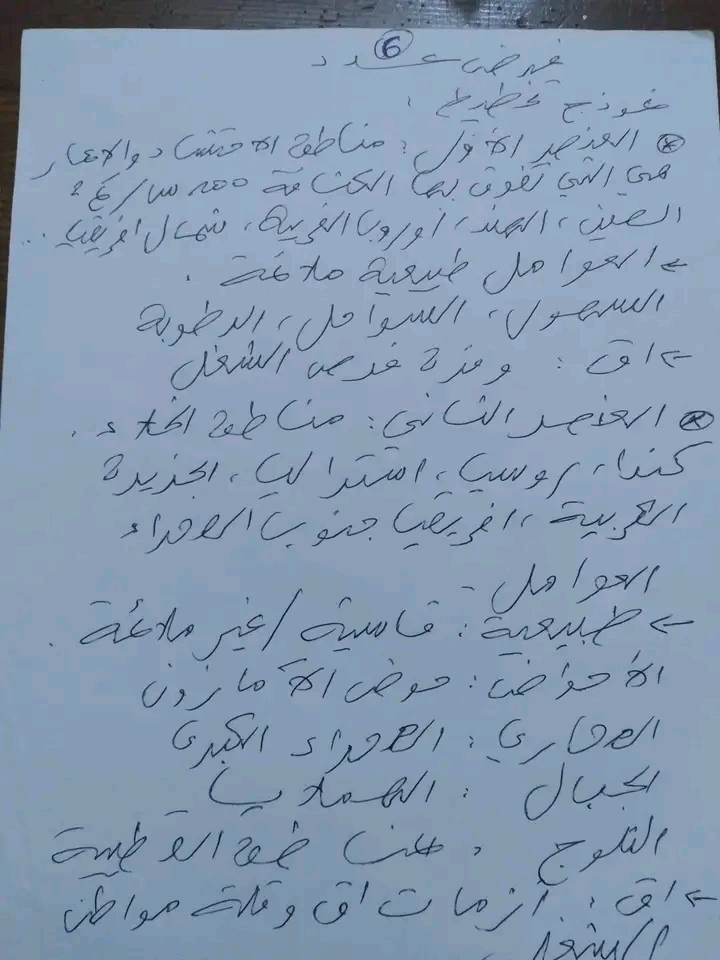 6
فرض عدد
نموذج تخطيط :
* العنصر الأول : مناطق الاكتظاظ والاعمار
هي التي تفوق بها الكثافة 200 س/كم2
الصين، الهند، أوروبا الغربية، شمال افريقيا ...
← العوامل طبيعية ملائمة .
السهول، السواحل، الرطوبة
← اق : وفرة فرص الشغل
* العنصر الثاني : مناطق الخلاء .
كندا، روسيا، استراليا، الجزيرة
العربية، افريقيا جنوب الصحراء
العوامل
← طبيعية : قاسية / غير ملائمة .
الأحواض : حوض الأمازون
الصحاري : الصحراء الكبرى
الجبال : الهملايا
الثلوج : المناطق القطبية
← اق : أزمات اق وقلة مواطن
الشغل